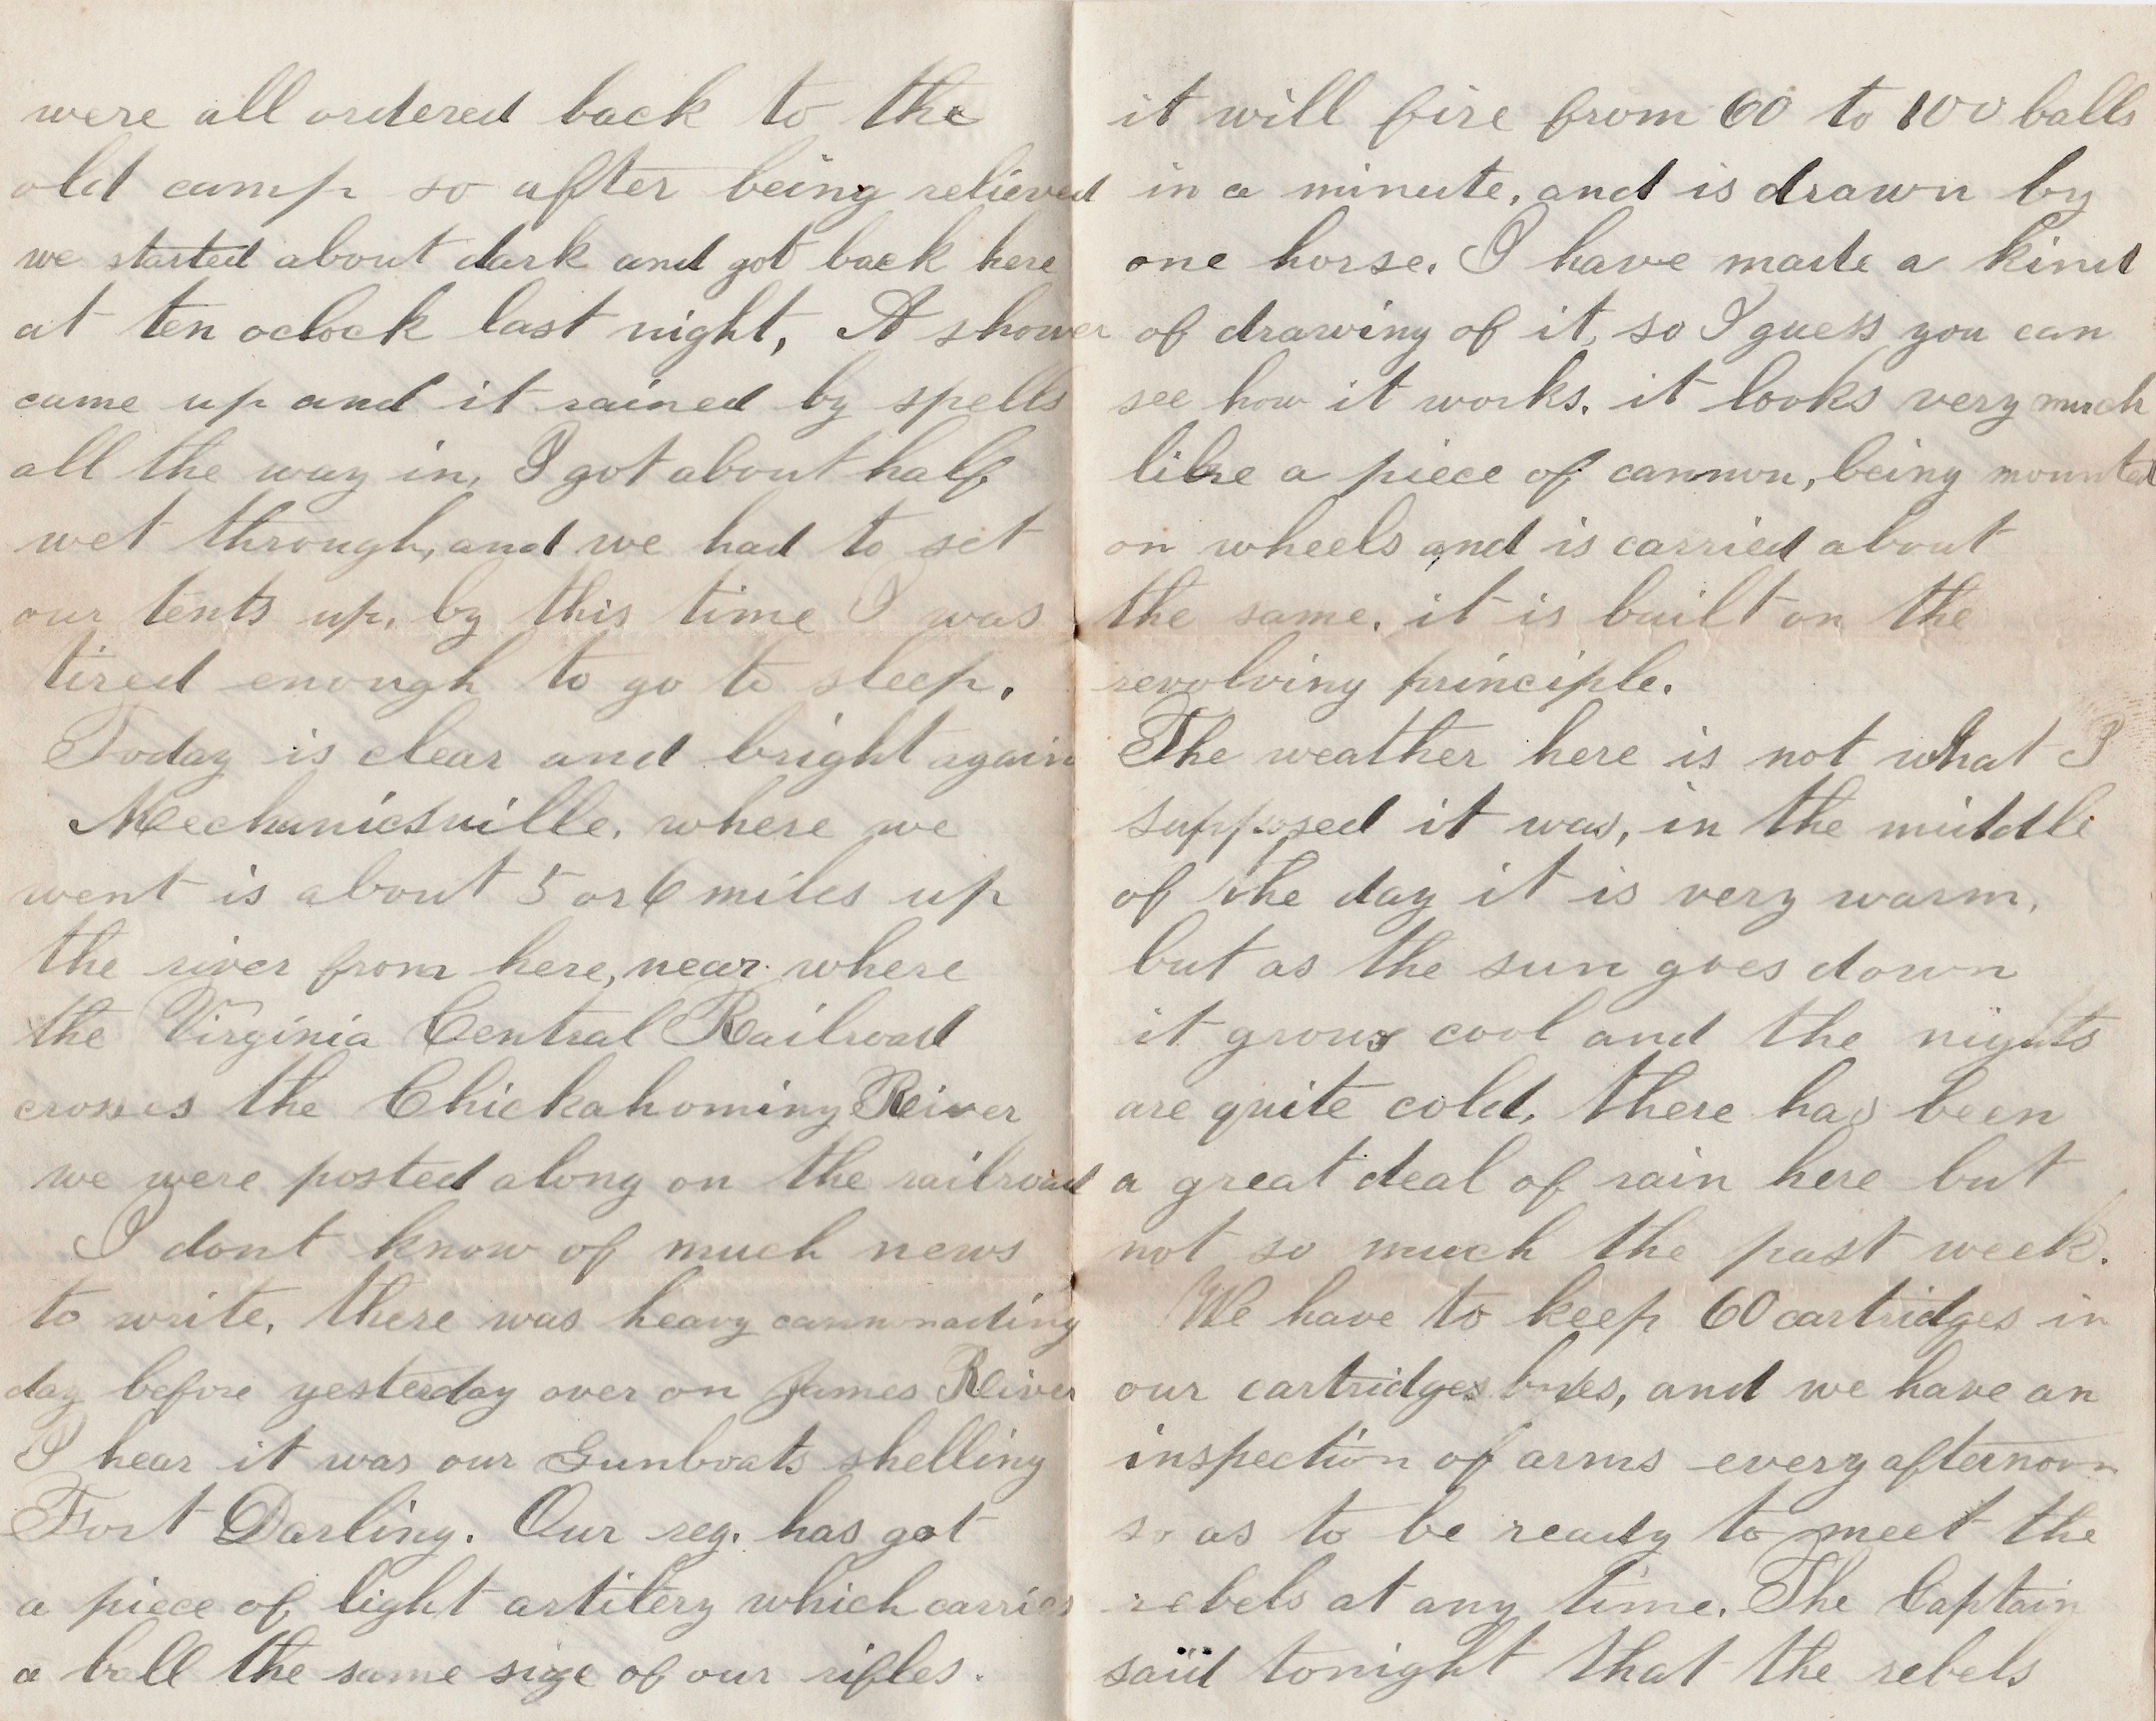 were all ordered back to the
old camp so after being relieved
we started about dark and got back here
at ten oclock last night, A shower
came up and it rained by spells
all the way in, I got about half
wet through, and we had to set
our tents up, by this time I was
tired enough to go to sleep.
Today is clear and bright again
Mechanicsville, where we
went is about 5 or 6 miles up
the river from here, near where
the Virginia Central Railroad
crosses the Chickahominy River
we were posted along on the railroad
I dont know of much news
to write, there was heavy cannonading
day before yesterday over on James River
I hear it was our Gunboats shelling
Fort Darling. Our reg. has got
a piece of light artilery which carries
a ball the same size of our rifles.
it will fire from 60 to 100 balls
in a minute, and is drawn by
one horse. I have made a kind
of drawing of it, so I guess you can
see how it works. it looks very much
like a piece of cannon, being mounted
on wheels and is carried about
the same. it is built on the
revolving principle.
The weather here is not what I
supposed it was, in the middle
of the day it is very warm,
but as the sun goes down
it grows cool and the nights
are quite cold, there has been
a great deal of rain here but
not so much the past week.
We have to keep 60 cartridges in
our cartridges boxes, and we have an
inspection of arms every afternoon
so as to be ready to meet the
rebels at any time. The Captain
said tonight that the rebels